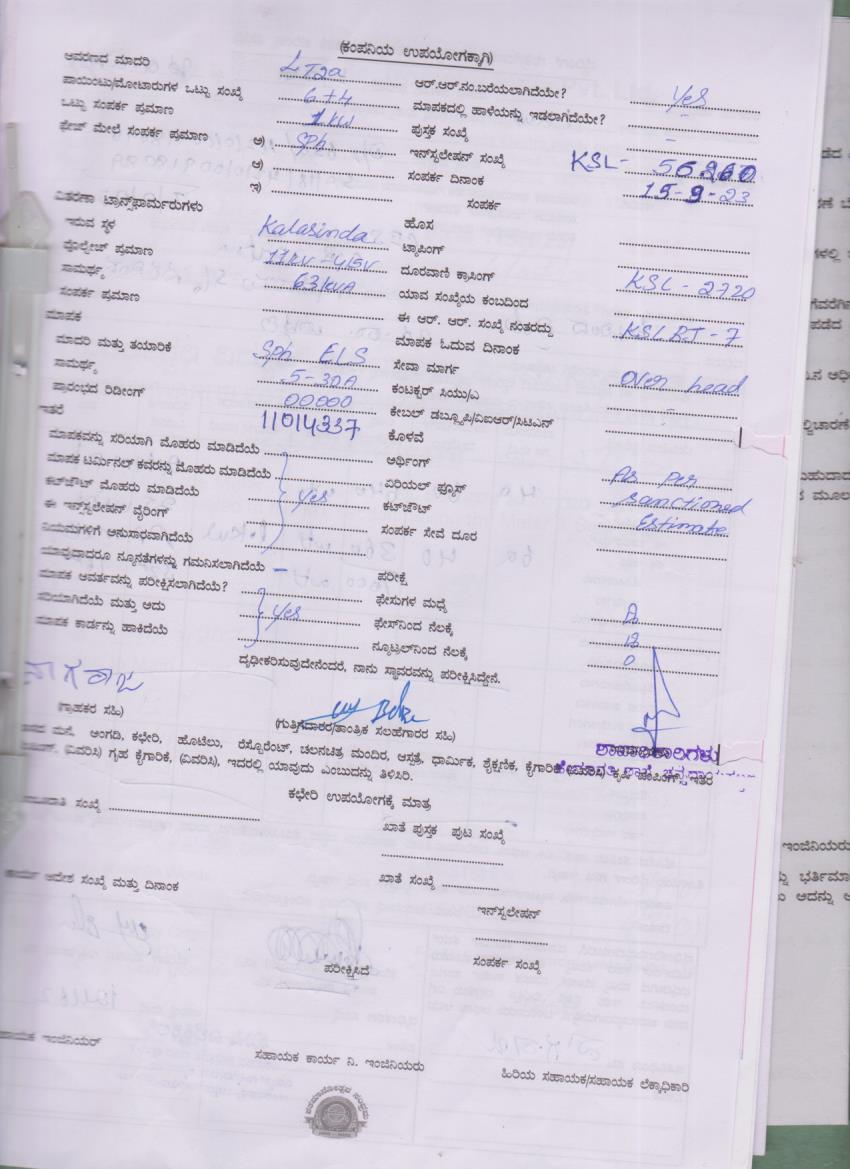 (ಕಂಪನಿಯ ಉಪಯೋಗಕ್ಕಾಗಿ)
ಆವರಣದ ಮಾದರಿ LT2a ಆರ್.ಆರ್.ನಂ.ಬರೆಯಲಾಗಿದೆಯೇ? Yes
ಪಾಯಿಂಟು/ಮೋಟಾರುಗಳ ಒಟ್ಟು ಸಂಖ್ಯೆ 6+4 ಮಾಪಕದಲ್ಲಿ ಹಾಳೆಯನ್ನು ಇಡಲಾಗಿದೆಯೇ? -
ಒಟ್ಟು ಸಂಪರ್ಕ ಪ್ರಮಾಣ 1kW ಪುಸ್ತಕ ಸಂಖ್ಯೆ -
ಫೇಜ್ ಮೇಲೆ ಸಂಪರ್ಕ ಪ್ರಮಾಣ ಅ) SPh ಇನ್‌ಸ್ಟಲೇಷನ್ ಸಂಖ್ಯೆ KSL- 56260
ಆ) ಸಂಪರ್ಕ ದಿನಾಂಕ 15-9-23
ಇ) ಸಂಪರ್ಕ
ವಿತರಣಾ ಟ್ರಾನ್ಸ್‌ಫಾರ್ಮರುಗಳು ಹೊಸ
ಇರುವ ಸ್ಥಳ Kalasinda ಟ್ಯಾಪಿಂಗ್
ವೋಲ್ಟೇಜ್ ಪ್ರಮಾಣ 11kV-415V ದೂರವಾಣಿ ಕ್ರಾಸಿಂಗ್
ಸಾಮರ್ಥ್ಯ 63kVA ಯಾವ ಸಂಖ್ಯೆಯ ಕಂಬದಿಂದ KSL-2720
ಸಂಪರ್ಕ ಪ್ರಮಾಣ ಈ ಆರ್. ಆರ್. ಸಂಖ್ಯೆ ನಂತರದ್ದು KSLRJ-7
ಮಾಪಕ ಮಾಪಕ ಓದುವ ದಿನಾಂಕ
ಮಾದರಿ ಮತ್ತು ತಯಾರಿಕೆ Sph ELS ಸೇವಾ ಮಾರ್ಗ Over head
ಸಾಮರ್ಥ್ಯ 5-30A ಕಂಟಕ್ಟರ್ ಸಿಯು/ಎ -
ಪ್ರಾರಂಭದ ರಿಡೀಂಗ್ 00000 ಕೇಬಲ್ ಡಬ್ಲ್ಯೂಪಿ/ವಿಐಆರ್/ಸಿಟಿಎಸ್
ಇತರೆ 11014337 ಕೊಳವೆ
ಮಾಪಕವನ್ನು ಸರಿಯಾಗಿ ಮೊಹರು ಮಾಡಿದೆಯೆ ಅರ್ಥಿಂಗ್
ಮಾಪಕ ಟರ್ಮಿನಲ್ ಕವರನ್ನು ಮೊಹರು ಮಾಡಿದೆಯೆ ಏರಿಯಲ್ ಫ್ಯೂಸ್ As per
ಕಟ್‌ಔಟ್ ಮೊಹರು ಮಾಡಿದೆಯೆ Yes ಕಟ್‌ಔಟ್ Sanctioned
ಈ ಇನ್‌ಸ್ಟಲೇಷನ್ ವೈರಿಂಗ್ ಸಂಪರ್ಕ ಸೇವೆ ದೂರ Estimate
ನಿಯಮಗಳಿಗೆ ಅನುಸಾರವಾಗಿದೆಯೆ
ಯಾವುದಾದರೂ ನ್ಯೂನತೆಗಳನ್ನು ಗಮನಿಸಲಾಗಿದೆಯೆ - ಪರೀಕ್ಷೆ
ಮಾಪಕ ಆವರ್ತವನ್ನು ಪರೀಕ್ಷಿಸಲಾಗಿದೆಯೆ? ಫೇಸುಗಳ ಮಧ್ಯೆ
ಸರಿಯಾಗಿದೆಯೆ ಮತ್ತು ಅದು Yes ಫೇಸ್‌ನಿಂದ ನೆಲಕ್ಕೆ
ಮಾಪಕ ಕಾರ್ಡನ್ನು ಹಾಕಿದೆಯೆ ನ್ಯೂಟ್ರಲ್‌ನಿಂದ ನೆಲಕ್ಕೆ 0
ದೃಢೀಕರಿಸುವುದೇನೆಂದರೆ, ನಾನು ಸ್ಥಾವರವನ್ನು ಪರೀಕ್ಷಿಸಿದ್ದೇನೆ.
ನಾಗರಾಜ
(ಗ್ರಾಹಕರ ಸಹಿ) (ಗುತ್ತಿಗೆದಾರರ/ತಾಂತ್ರಿಕ ಸಲಹೆಗಾರರ ಸಹಿ)
ಶಾಖಾಧಿಕಾರಿಗಳು
ಮನೆ, ಅಂಗಡಿ, ಕಛೇರಿ, ಹೊಟೆಲು, ರೆಸ್ಟೊರೆಂಟ್, ಚಲನಚಿತ್ರ ಮಂದಿರ, ಆಸ್ಪತ್ರೆ, ಧಾರ್ಮಿಕ, ಶೈಕ್ಷಣಿಕ, ಕೈಗಾರಿಕೆ (ವಿವರಿಸಿ) ಕೃಷಿ ಪಂಪಿಂಗ್ ಇತರ
(ವಿವರಿಸಿ) ಗೃಹ ಕೈಗಾರಿಕೆ, (ವಿವರಿಸಿ), ಇದರಲ್ಲಿ ಯಾವುದು ಎಂಬುದನ್ನು ತಿಳಿಸಿರಿ.
ಕಛೇರಿ ಉಪಯೋಗಕ್ಕೆ ಮಾತ್ರ
ಸಂಖ್ಯೆ ಖಾತೆ ಪುಸ್ತಕ ಪುಟ ಸಂಖ್ಯೆ
ಕಾರ್ಯ ಆದೇಶ ಸಂಖ್ಯೆ ಮತ್ತು ದಿನಾಂಕ ಖಾತೆ ಸಂಖ್ಯೆ
ಇನ್‌ಸ್ಟಲೇಷನ್
ಪರೀಕ್ಷಿಸಿದೆ ಸಂಪರ್ಕ ಸಂಖ್ಯೆ
ಇಂಜಿನಿಯರ್ ಸಹಾಯಕ ಕಾರ್ಯ ನಿ. ಇಂಜಿನಿಯರು ಹಿರಿಯ ಸಹಾಯಕ/ಸಹಾಯಕ ಲೆಕ್ಕಾಧಿಕಾರಿ